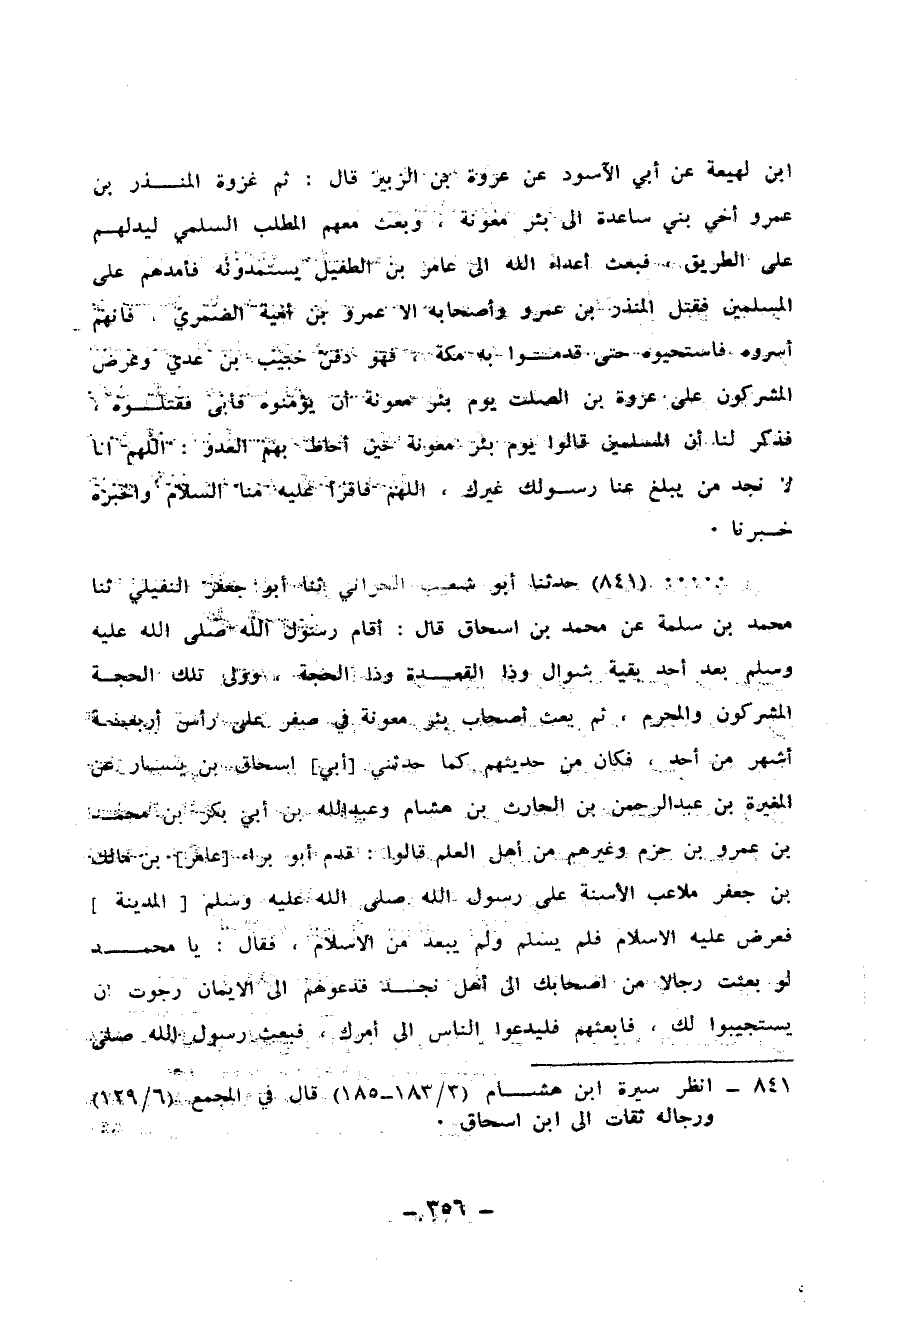 ابن لهيعة عن أبي الأسود عن عروة بن الزبير قال : ثم غزوة المنـــذر بن
عمرو أخي بني ساعدة الى بئر معونة ، وبعث معهم المطلب السلمي ليدلهـم
على الطريق ، فبعث أعداء الله الى عامر بن الطفيل يستمدونه فأمدهم على
المسلمين فقتل المنذر بن عمرو وأصحابه الا عمرو بن أمية الضمري ، فانهم
أسروه فاستحيوه حتى قدمـــوا به مكة ، فهو دفن خبيب بن عدي وعرض
المشركون على عروة بن الصلت يوم بئر معونة أن يؤمنوه فأبى فقتلـــوه ،
فذكر لنا أن المسلمين قالوا يوم بئر معونة حين أحاط بهم العدو : اللهم انا
لا نجد من يبلغ عنا رســولك غيرك ، اللهم فاقرأ عليه منا السلام وأخبره
خــبرنا ٠
(٨٤١) حدثنا أبو شعيب الحراني ثنا أبو جعفر النفيلي ثنا
محمد بن سلمة عن محمد بن اسحاق قال : أقام رسول الله صلى الله عليه
وسلم بعد أحد بقية شوال وذا القعـــدة وذا الحجة ، وولى تلك الحجـة
المشركون والمحرم ، ثم بعث أصحاب بئر معونة في صفر على رأس أربعـة
أشهر من أحد ، فكان من حديثهم كما حدثني [أبي] اسحاق بن يســار عن
المغيرة بن عبدالرحمن بن الحارث بن هشام وعبدالله بن أبي بكر بن محمـد
بن عمرو بن حزم وغيرهم من أهل العلم قالوا : قدم أبو براء [عامر] بن مالك
بن جعفر ملاعب الأسنة على رسول الله صلى الله عليه وسلم [ المدينة ]
فعرض عليه الاسلام فلم يسلم ولم يبعد من الاسلام ، فقال : يا محمـــد
لو بعثت رجالا من اصحابك الى أهل نجـــد فدعوهم الى الايمان رجوت ان
يستجيبوا لك ، فابعثهم فليدعوا الناس الى أمرك ، فبعث رسول الله صلى
٨٤١ – انظر سيرة ابن هشــــام (١٨٣/٣–١٨٥) قال في المجمع (١٢٩/٦)
ورجاله ثقات الى ابن اسحاق ٠
– ٣٥٦ –